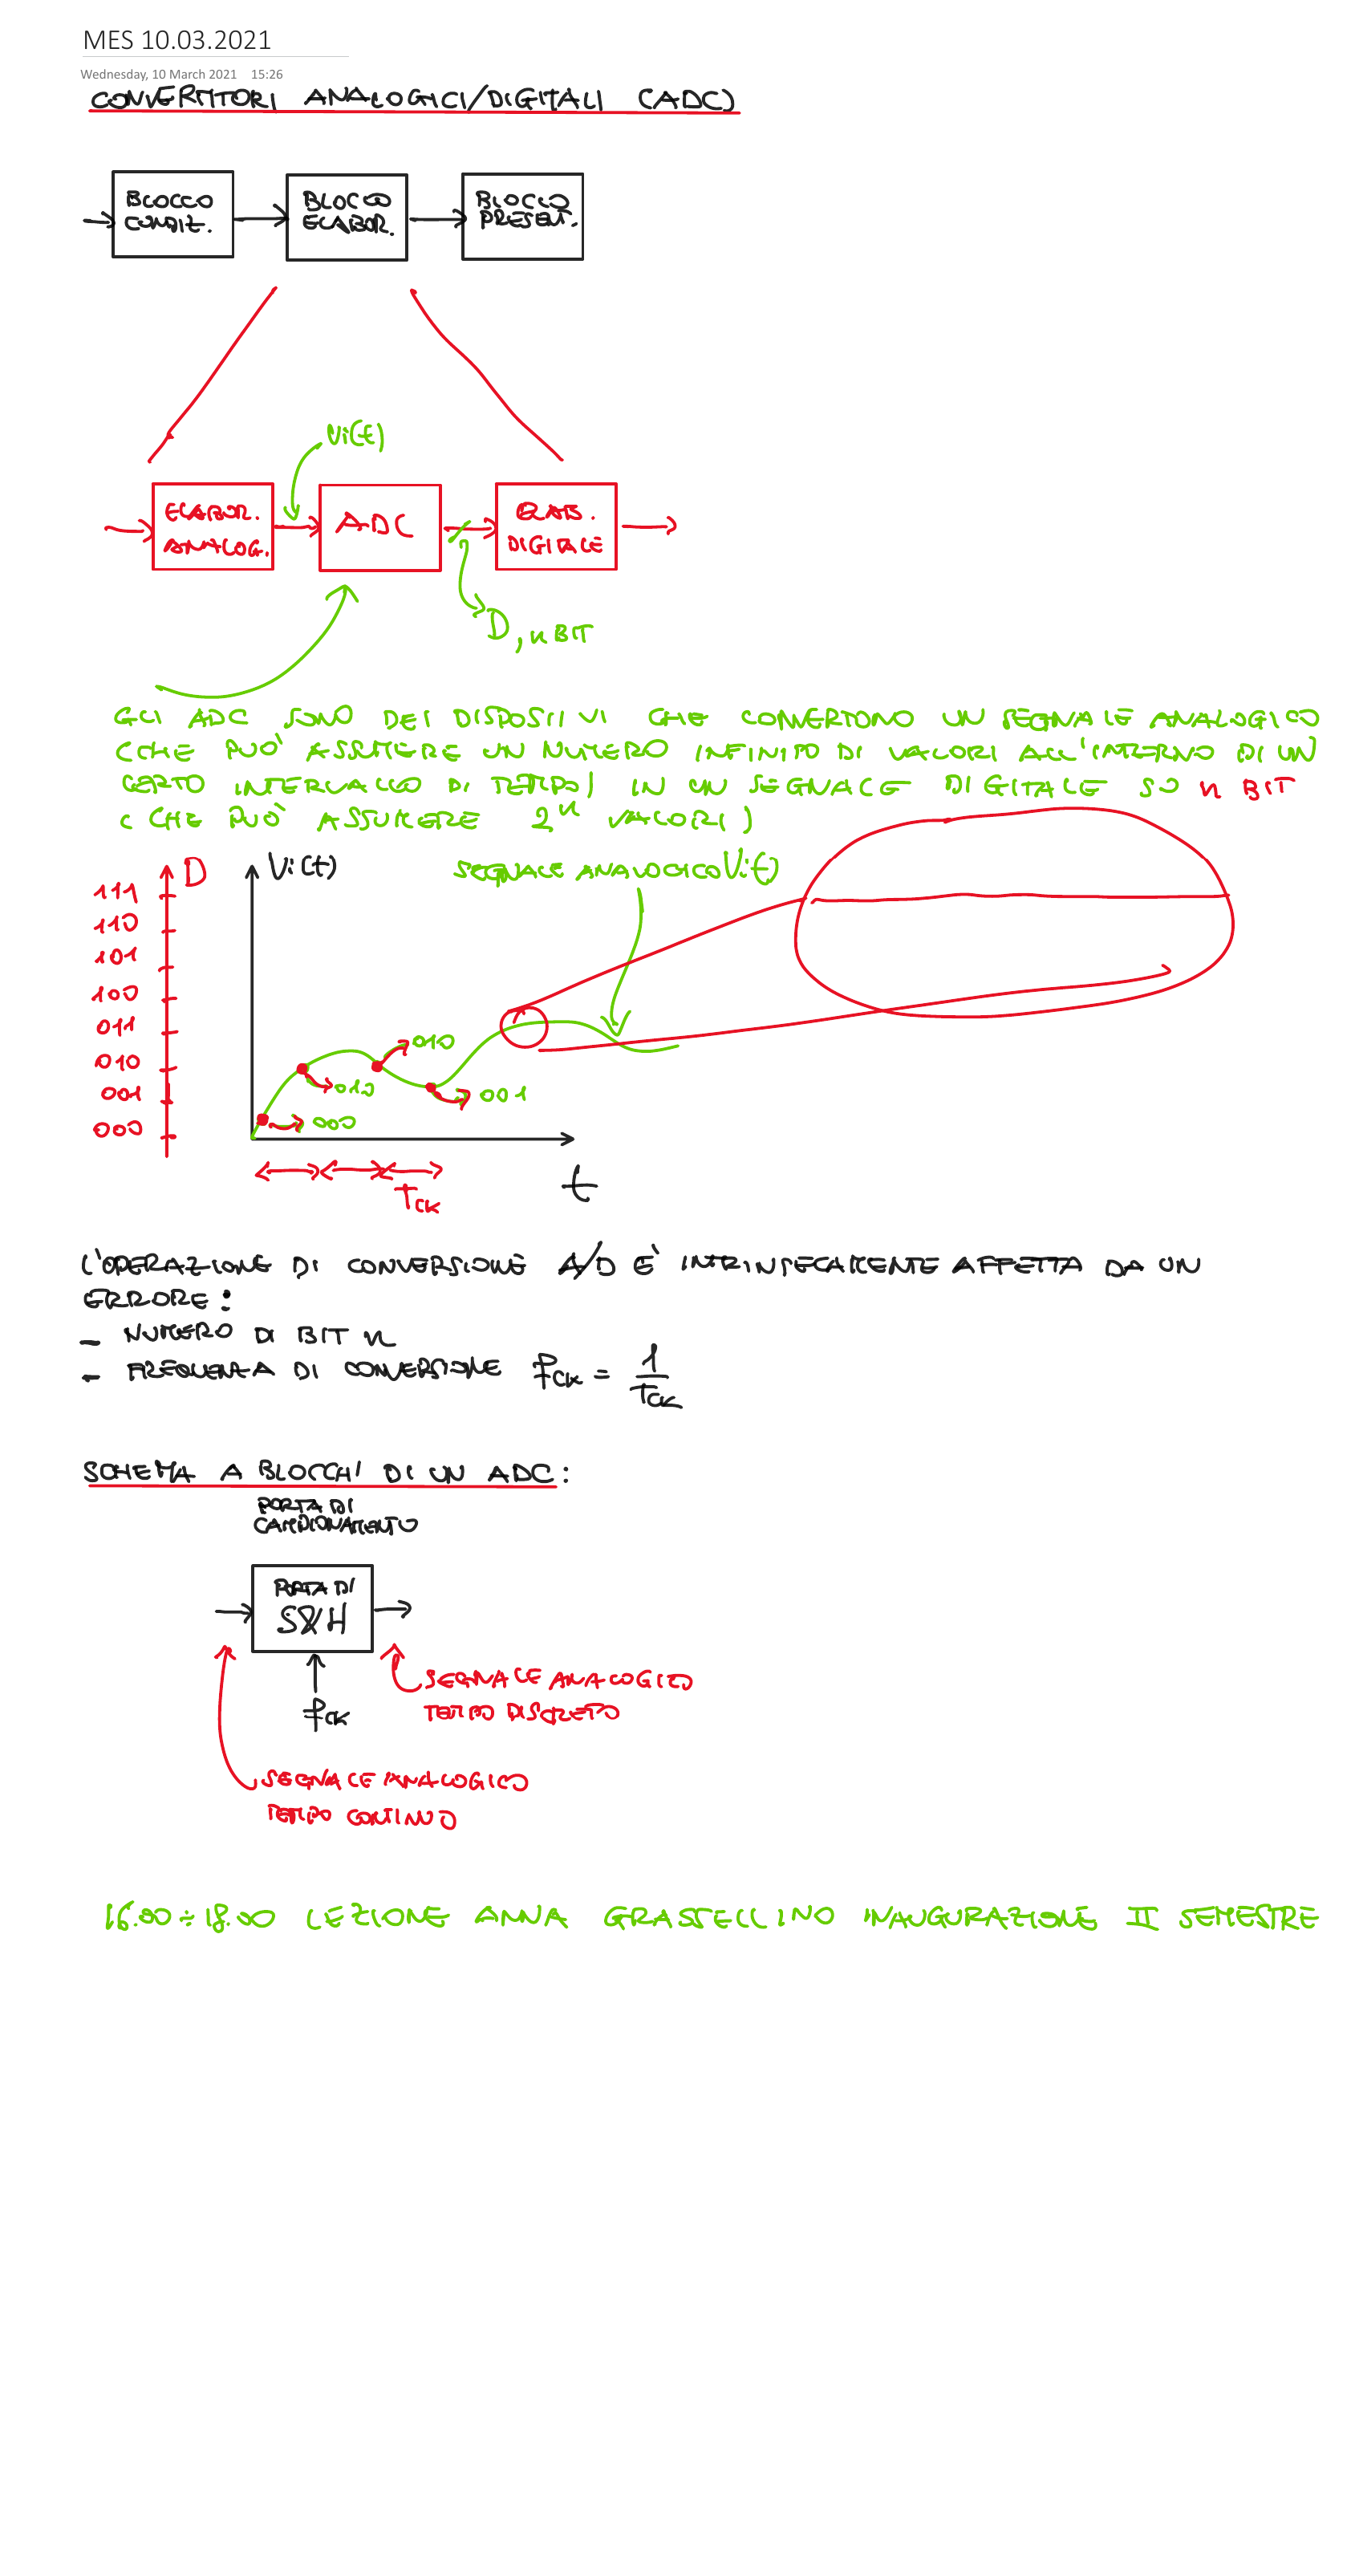 MES 10.03.2021
Wednesday, 10 March 2021 15:26
CONVERTITORI ANALOGICI/DIGITALI (ADC)
BLOCCO CONDIZ.
BLOCCO ELABOR.
BLOCCO PRESENT.
Vi(t)
ELABOR. ANALOG.
ADC
ELAB. DIGITALE
D, n BIT
GLI ADC SONO DEI DISPOSITIVI CHE CONVERTONO UN SEGNALE ANALOGICO
(CHE PUO' ASSUMERE UN NUMERO INFINITO DI VALORI ALL'INTERNO DI UN
CERTO INTERVALLO DI TEMPO) IN UN SEGNALE DIGITALE SU n BIT
(CHE PUO' ASSUMERE 2ⁿ VALORI)
D
Vi(t)
SEGNALE ANALOGICO Vi(t)
111
110
101
100
011
010
001
000
010
010
001
000
TCK
t
L'OPERAZIONE DI CONVERSIONE A/D E' INTRINSECAMENTE AFFETTA DA UN
ERRORE:
- NUMERO DI BIT n
- FREQUENZA DI CONVERSIONE fCK = 1/TCK
SCHEMA A BLOCCHI DI UN ADC:
PORTA DI
CAMPIONAMENTO
PORTA DI
S&H
fCK
SEGNALE ANALOGICO
TEMPO DISCRETO
SEGNALE ANALOGICO
TEMPO CONTINUO
16.00÷18.00 LEZIONE ANNA GRASSELLINO INAUGURAZIONE II SEMESTRE